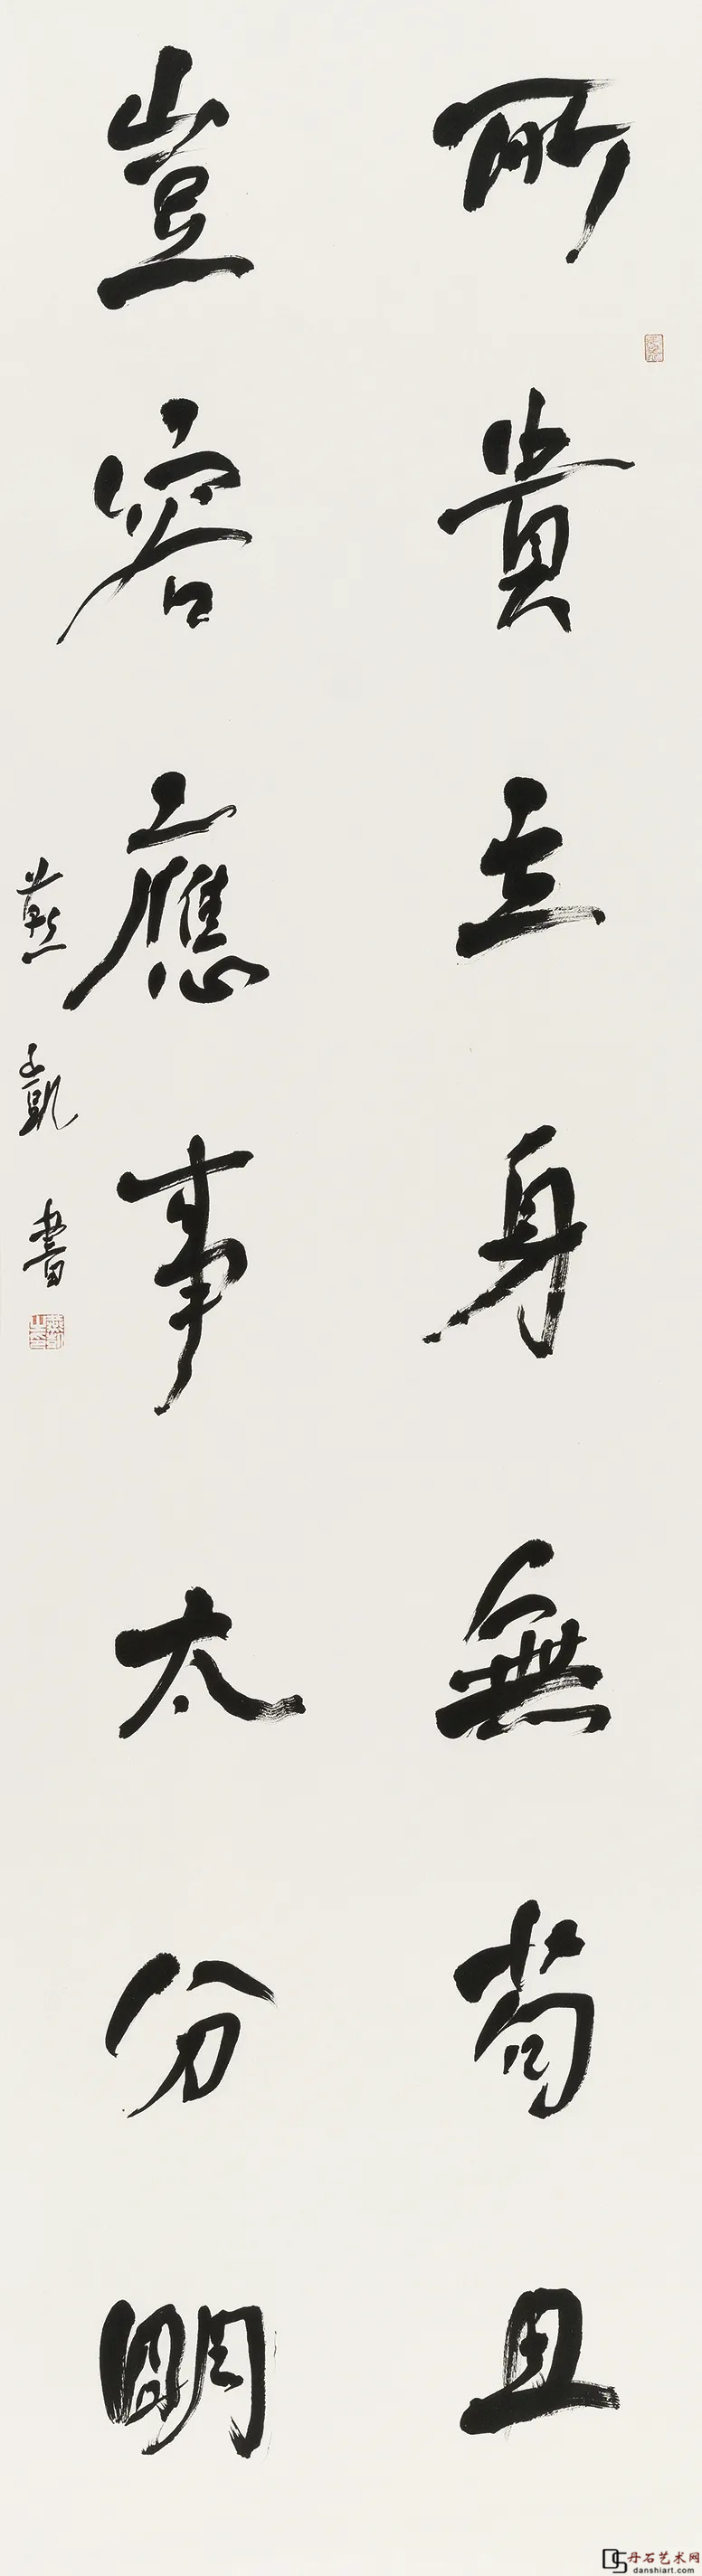 所貴立身無苟且
豈容應事太分明
燕凱書
丹石艺术网
danshiart.com